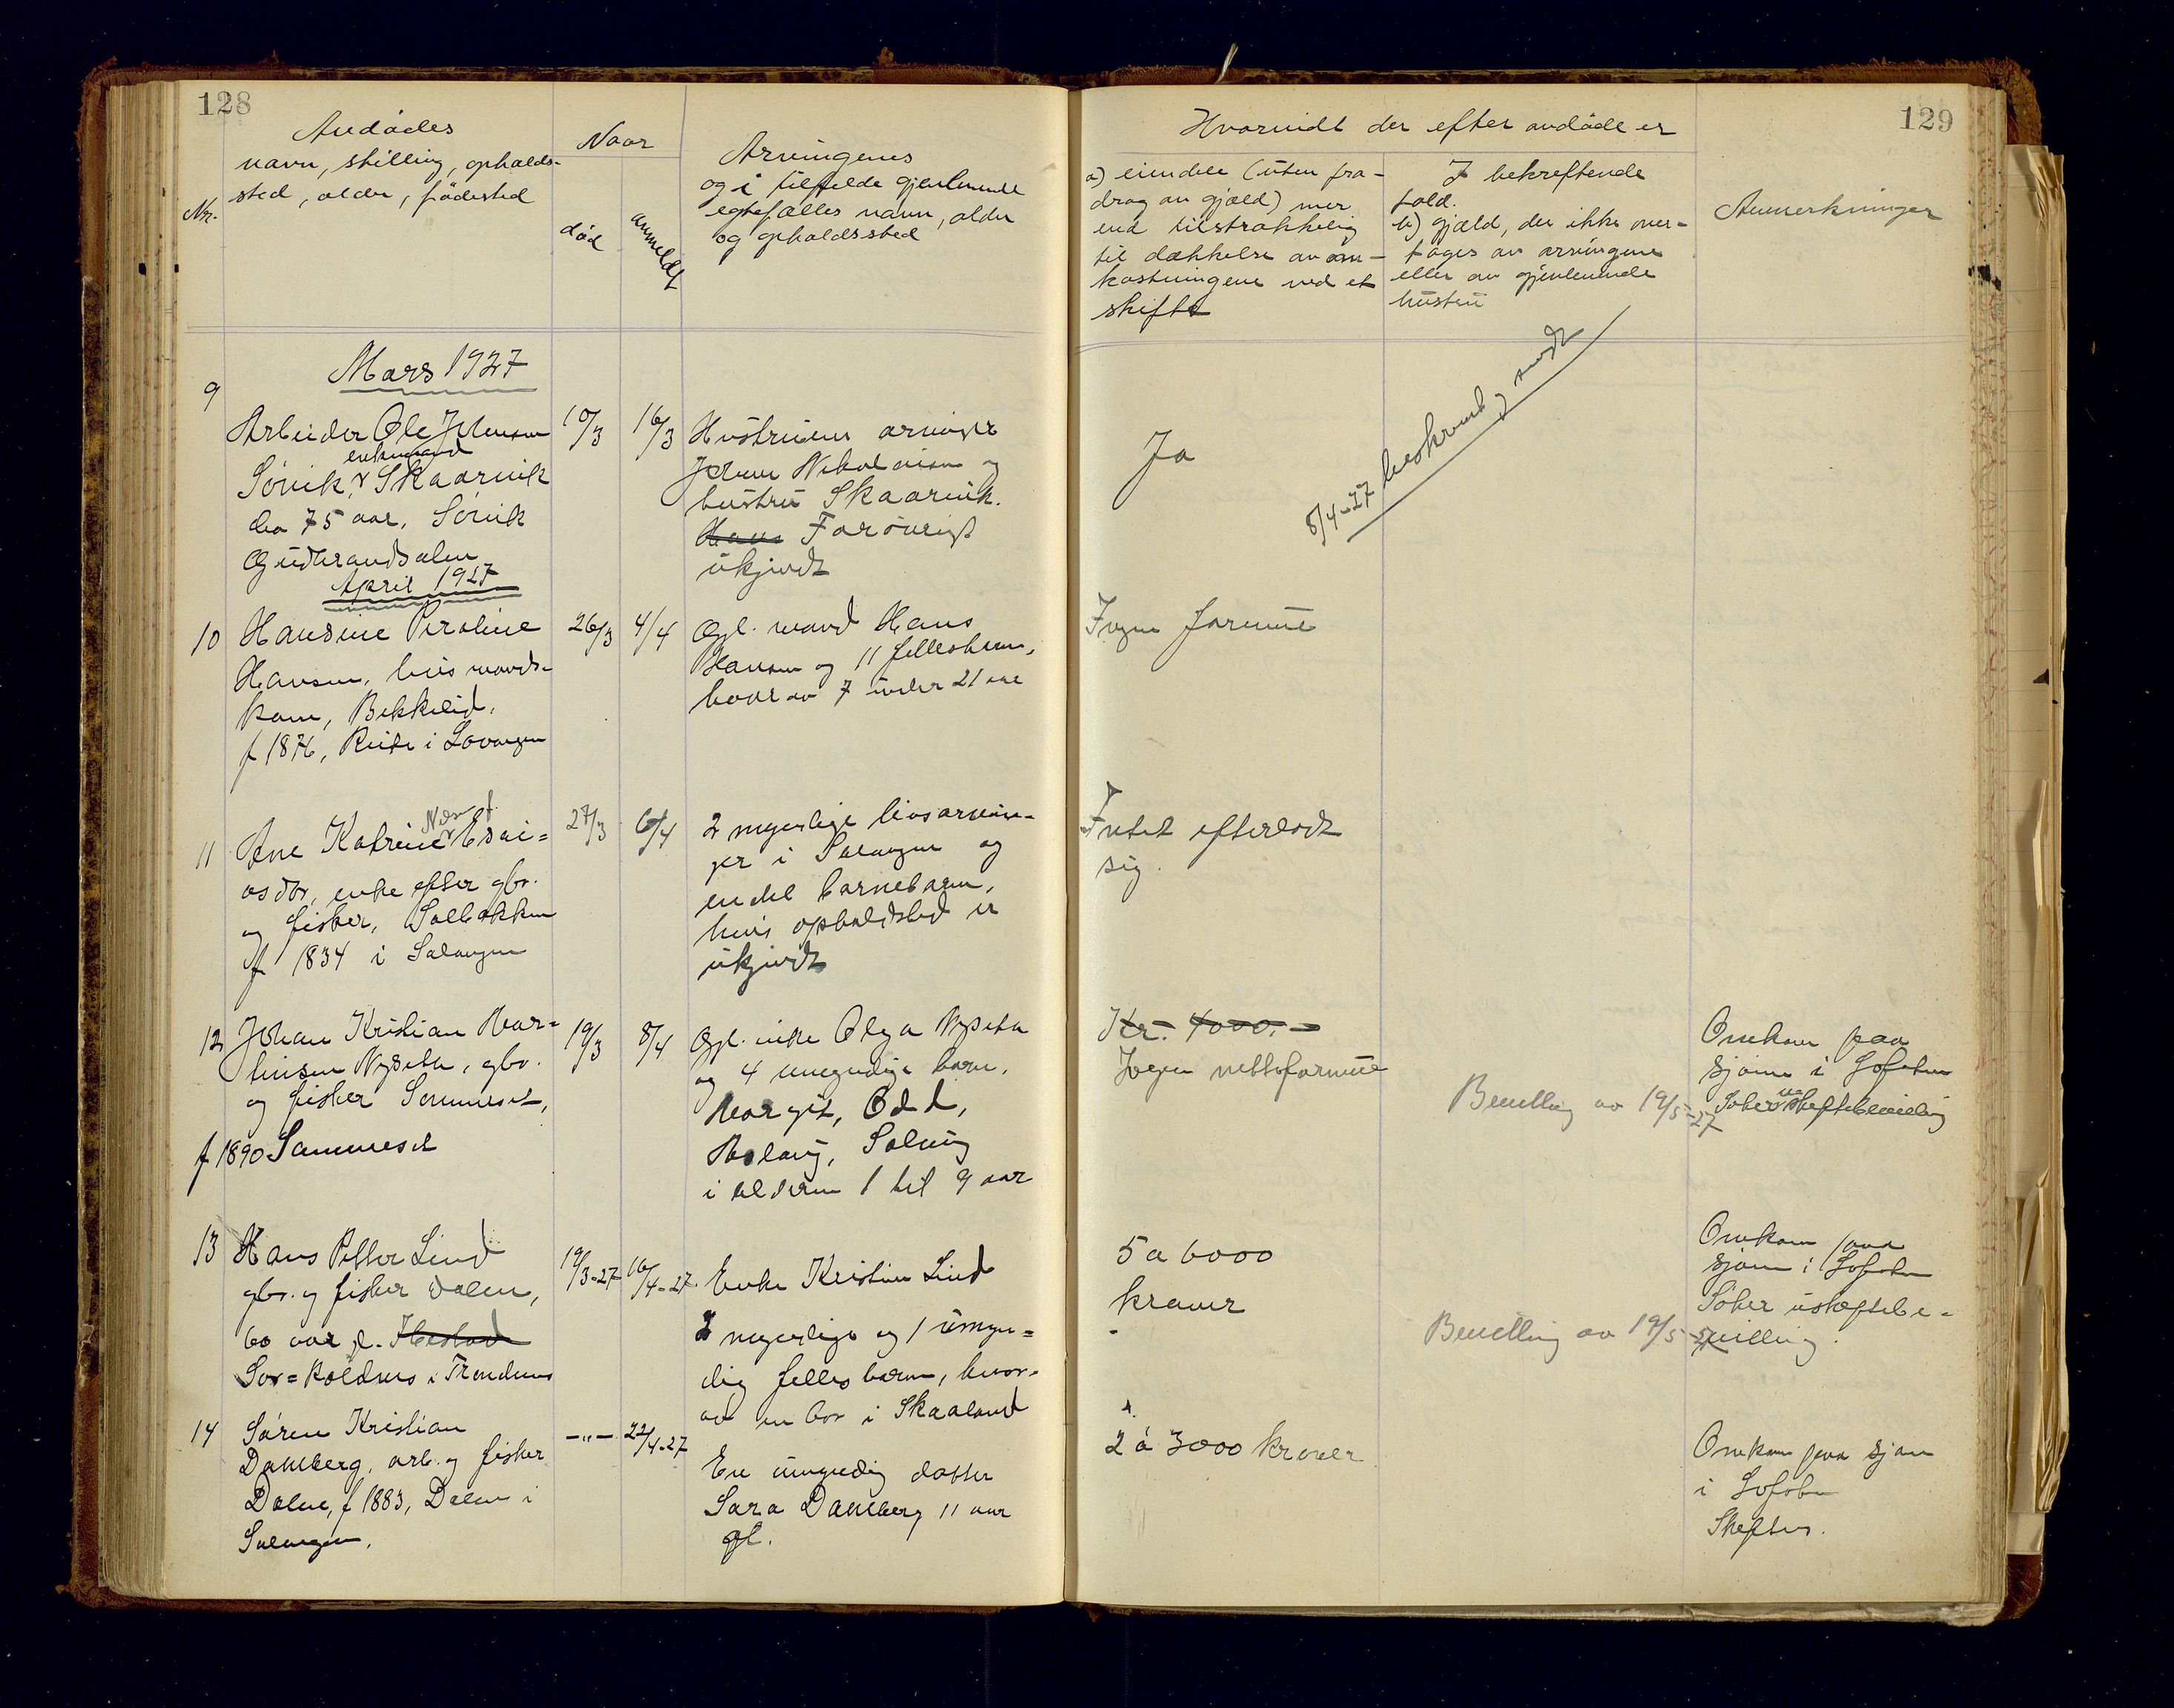 128
Avdødes
navn, stilling, opholds-
sted, alder, fødested
Nr.
Naar
død
anmeldt
Arvingenes
og i tilfelde gjenlevende
egtefælles navn, alder
og opholdssted
129
Hvorvidt der efter avdøde er
a) eiendele (uten fra-
drag av gjæld) mer
end tilstrækkelig
til dækkelse av om-
kostningene ved et
skifte
I bekreftende
fald.
b) gjæld, der ikke over-
tages av arvingene
eller av gjenlevende
hustru
Anmerkninger
Mars 1927
9
Arbeider Ole Johnsen
enkemand
Sørvik, Skaarvik
ca 75 aar, Sørvik
Gudbrandsdalen
10/3
16/3
Hustruens arvinger
Johan Nikolaisen og
hustru Skaarvik.
Hans Forøvrigt
ukjendt
Ja
8/4-27 beskrevet og sendt
April 1927
10 Hansine Peroline
Hansen, husmands-
kone, Bekkelid,
f 1876, Reite i Lavangen
26/3
4/4
Gjl. mand Hans
Hansen og 11 fellesbarn,
hvorav 7 under 21 aar
Ingen formue
11 Ane Katrine Esai-
asdtr, enke efter gbr.
og fisker, Solbakken
f 1834 i Salangen
27/3
6/4
2 myndige livsarvin-
ger i Salangen og
endel barnebarn,
hvis opholdsted er
ukjendt
Intet efterlodt
sig.
12 Johan Kristian Mar-
tinsen Nyseth, gbr.
og fisker Sommeset,
f 1890 Sommeset
19/3
8/4
Gjl. enke Olga Nyseth
og 4 umyndige barn,
Margit, Odd,
Aslaug, Solveig
i alderen 1 til 9 aar
Kr. 4000.-
Ingen nettoformue
Bevilling av 19/5-27
Omkom paa
sjøen i Lofoten
Søker uskiftebevilling
13 Hans Petter Lind
gbr. og fisker Dalen,
60 aar, f. Ibestad
Sør-Koldnes i Trondenes
19/3-27
16/4-27
Enke Kristine Lind
2 myndige og 1 umyn-
dig fellesbarn, hvor-
av en bor i Skaaland
5 a 6000
kroner
Bevilling av 19/5-27
Omkom paa
sjøen i Lofoten
Søker uskiftebe-
villing.
14 Søren Kristian
Dahlberg, arb. og fisker
Dalen, f 1883, Dalen i
Salangen.
-"-
22/4-27
En umyndig datter
Sara Dahlberg 11 aar
gl.
2 á 3000 kroner
Omkom paa sjøen
i Lofoten
Skiftes.